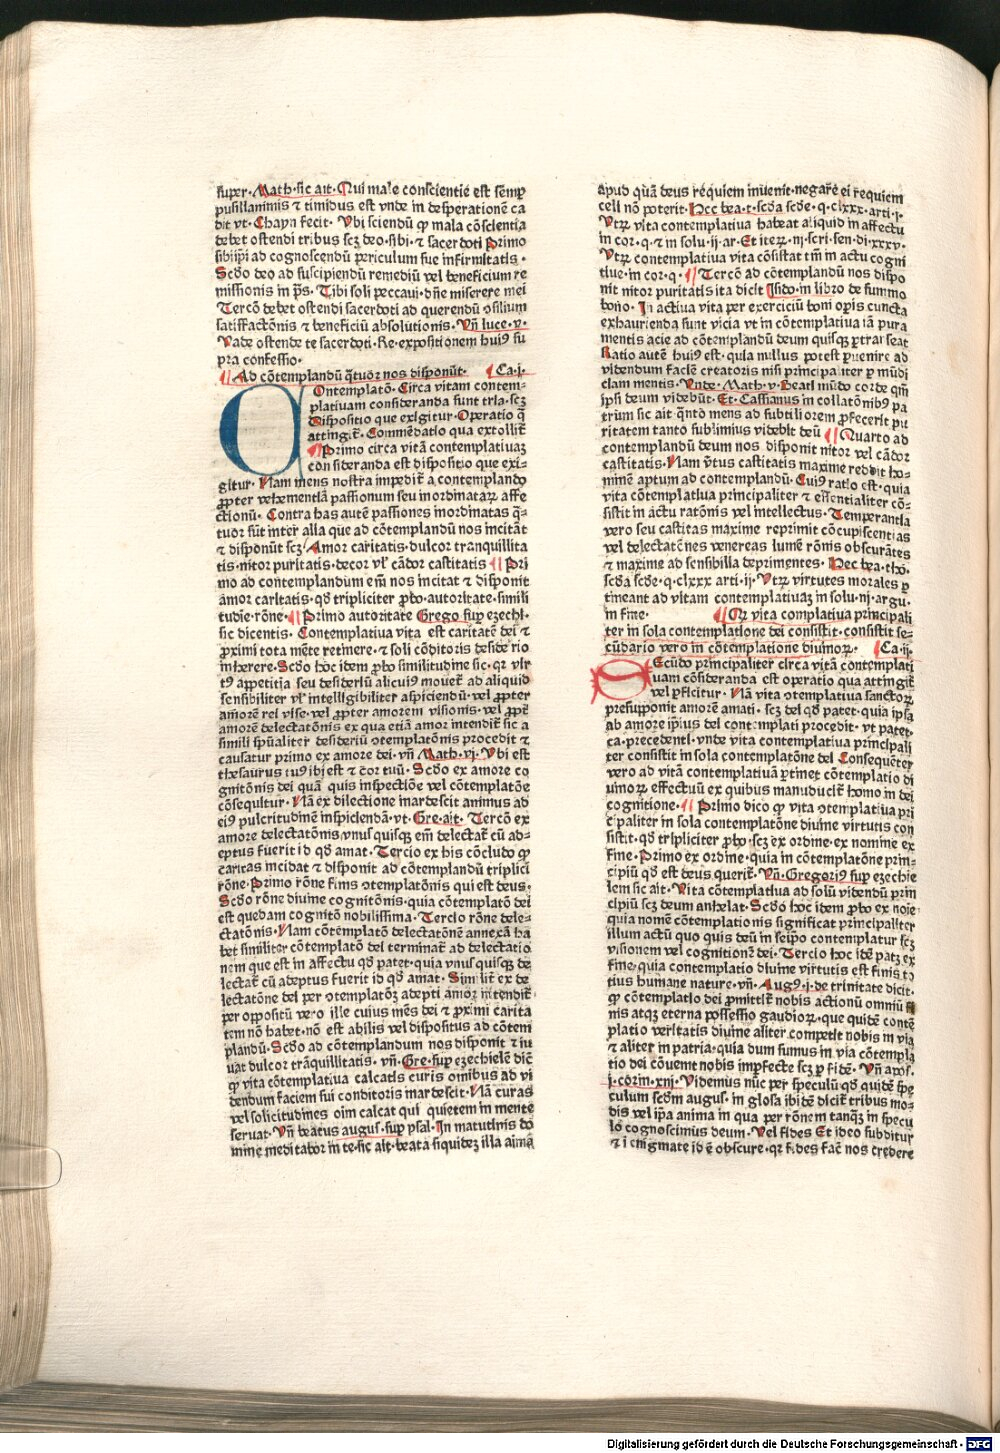 super·Math·sic ait·Qui male conscientie est semꝑ
pusillanimis ⁊ timidus est vnde in desperationē ca
dit vt·Chayn fecit·Vbi sciendū ꝙ mala cōscientia
debet ostendi tribus scꝫ deo·sibi·⁊ sacerdoti Primo
sibiip̄i ad cognoscendū periculum sue infirmitatis·
Scd̄o deo ad suscipiendū remediū vel beneficium re
missionis in ps̄·Tibi soli peccaui·dn̄e miserere mei
Tercō debet ostendi sacerdoti ad querendū ↄsilium
satiffactōnis ⁊ beneficiū absolutionis·Vn̄ luce·v·
Vade ostende te sacerdoti·Re·expositionem huiꝰ su
pra confessio·
¶ Ad cōtemplandū q̄tuor nos disponūt· ¶ Ca·j·
Ontemplatō·Circa vitam contem-
platiuam consideranda sunt tria·scꝫ
Dispositio que exigitur·Operatio q̄
attingit᷑·Commēdatio qua extollit᷑
¶ Primo circa vitā contemplatiuaꝫ
consideranda est dispositio que exi-
gitur·Nam mens nostra impedit᷑ a contemplando
ꝓpter vehementiā passionum seu inordinataꝝ affe
ctionū·Contra has autē passiones inordinatas q̄-
tuor sūt inter alia que ad cōtemplandū nos incitāt
⁊ disponūt scꝫ Amor caritatis·dulcor tranquillita
tis·nitor puritatis·decor vl᷑ cādor castitatis ¶ Pri
mo ad contemplandum em̄ nos incitat ⁊ disponit
amor caritatis·qd̄ tripliciter ꝓbo·autoritate·simili
tudie·rōne·¶ Primo autoritate Grego suꝑ ezechi·
sic dicentis·Contemplatiua vita est caritatē dei ⁊
ꝓximi tota mēte retinere·⁊ soli cōditoris desiderio
inherere·Scd̄o hoc idem ꝓbo similitudine sic·qꝛ vir
tꝰ appetitia seu desideriū alicuiꝰ mouet᷑ ad aliquid
sensibiliter vl᷑ intelligibiliter aspiciendū·vel ꝓpter
amorē rei vise·vel ꝓpter amorem visionis·vel ꝓpt᷑
amorē delectatōnis ex qua etiā amor intendit᷑ sic a
simili spūaliter desideriū ↄtemplatōnis procedit ⁊
causatur primo ex amore dei·vn̄ Math·vj·Vbi est
thesaurus tuꝰ ibi est ⁊ cor tuū·Scd̄o ex amore co
gnitōnis dei quā quis inspectiōe vel cōtemplatōe
cōsequitur·Nā ex dilectione inardescit animus ad
eiꝰ pulcritudinē inspiciendā·vt·Gre·ait·Tercō ex
amore delectatōnis vnusquisqꝫ em̄ delectat᷑ cū ad-
eptus fuerit id qd̄ amat·Tercio ex his cōcludo ꝙ
caritas incidat ⁊ disponit ad cōtemplandū triplici
rōne·Primo rōne finis ↄtemplatōnis qui est deus·
Scd̄o rōne diuine cognitōnis·quia cōtemplatō dei
est quedam cognitō nobilissima·Tercio rōne dele-
ctatōnis·Nam cōtemplatō delectatōnē annexā ha
bet similiter cōtemplatō dei terminat᷑ ad delectatio
nem que est in affectu qd̄ patet·quia vnusquisqꝫ de
lectat᷑ cū adeptus fuerit id qd̄ amat·Similit᷑ ex de
lectatōne dei per ↄtemplatōꝫ adepti amor intendit᷑
per oppositū vero ille cuius mēs dei ⁊ ꝓximi carita
tem nō habet·nō est abilis vel dispositus ad cōtem
plandū·Scd̄o ad cōtemplandum nos disponit ⁊ iu
uat dulcor trāquillitatis·vn̄·Gre·suꝑ ezechielē dic̄
ꝙ vita cōtemplatiua calcatis curis omībus ad vi
dendum faciem sui conditoris inardescit·Nā curas
vel solicitudines oīm calcat qui quietem in mente
seruat·Vn̄ beatus augus·suꝑ psal·In matutinis do
mine meditabor in te·sic ait·beata siquidez illa aīma
apud quā deus requiem inuenit·negare ei requiem
celi nō poterit·Hec bea·t·scd̄a scd̄e·q·clxxx·arti·j·
Vtꝝ vita contemplatiua habeat aliquid in affectu
in cor·q·⁊ in solu·ij·ar·Et iteꝝ·nj·scri·sen·di·xxxv·
Vtꝝ contemplatiua vita cōsistat tm̄ in actu cogni
tiue·in cor·q·¶ Tercō ad cōtemplandū nos dispo
nit nitor puritatis ita dicit Isido·in libro de summo
bono·In actiua vita per exerciciū boni oꝑis cuncta
exhaurienda sunt vicia vt in cōtemplatiua iā pura
mentis acie ad cōtemplandū deum quisqꝫ ꝑtranseat
Ratio autē huiꝰ est·quia nullus potest ꝑuenire ad
videndum facie creatoris nisi principaliter ꝑ mūdi
ciam mentis·Vnde·Math·v·Beati mūdo corde qm̄
ipsi deum videbūt·Et·Cassianus in collatōnibꝰ pa
trum sic ait·q̄nto mens ad subtiliorem ꝓfecerit pu
ritatem tanto sublimius videbit deū ¶ Quarto ad
contemplandū deum nos disponit nitor vel cādor
castitatis·Nam v̄tus castitatis maxime reddit ho-
minē aptum ad contemplandū·Cuiꝰ ratio est·quia
vita cōtemplatiua principaliter ⁊ essentialiter cō-
sistit in actu ratōnis vel intellectus·Temperantia
vero seu castitas maxime reprimit cōcupiscentias
vel delectatēnes venereas lumē rōnis obscurātes
⁊ maxime ad sensibilia deprimentes·Hec bea·tho·
scd̄a scd̄e·q·clxxx arti·ij·Vtꝝ virtutes morales ꝑ
tineant ad vitam contemplatiuaꝫ in solu·nj·argu·
in fine· ¶ Qꝛ vita complatiua principali
ter in sola contemplatione dei consistit·consistit se-
cūdario vero in cōtemplatione diuinoꝝ· ¶ Ca·ij·
Ecūdo principaliter circa vitā contemplati
uam cōsideranda est operatio qua attingit᷑
vel ꝑficitur·Nā vita ↄtemplatiua sanctoꝝ
presupponit amorē amati·scꝫ dei qd̄ patet·quia ipsa
ab amore ip̄ius dei contemplati procedit·vt patet·
ca·precedenti·vnde vita contemplatiua principali
ter consistit in sola contemplatōne dei Consequēter
vero ad vitā contemplatiuā ꝑtinet cōtemplatio di
uinoꝝ effectuū ex quibus manuducit᷑ homo in dei
cognitione·¶ Primo dico ꝙ vita ↄtemplatiua pri
cipaliter in sola contemplatōne diuine virtutis con
sistit·qd̄ tripliciter ꝓbo·scꝫ ex ordine·ex nomine ex
fine·Primo ex ordine·quia in cōtemplatōne prin-
cipiū qd̄ est deus querit᷑·Vn̄·Gregoriꝰ suꝑ ezechie
lem sic ait·Vita cōtemplatiua ad solū videndū prin
cipiū scꝫ deum anhelat·Scd̄o hoc idem ꝓbo ex noīe·
quia nomē cōtemplationis significat principaliter
illum actū quo quis deū in seip̄o contemplatur scꝫ
visionem vel cognitionē dei·Tercio hoc idē patꝫ ex
fine·quia contemplatio diuine virtutis est finis to
tius humane nature·vn̄·Augꝰ·j·de trinitate dicit·
ꝙ cōtemplatio dei ꝓmittit᷑ nobis actionū omniū fi
nis atqꝫ eterna possessio gaudioꝝ·que quidē contē
platio veritatis diuine aliter competit nobis in via
⁊ aliter in patria·quia dum sumus in via cōtempla
tio dei cōuenit nobis imꝑfecte scꝫ ꝑ fidē·Vn̄ apos·
j·corin·xnj·Videmus nūc per speculū qd̄ quidē spe
culum scd̄m augus·in glosa ibidē dicit᷑ tribus mo-
dis vel ip̄a anima in qua per rōnem tanqꝫ in specu
lo cognoscimus deum·Vel fides Et ideo subditur
⁊ i enigmate id ē obscure·qꝛ fides fac̄ nos credere
Digitalisierung gefördert durch die Deutsche Forschungsgemeinschaft - DFG